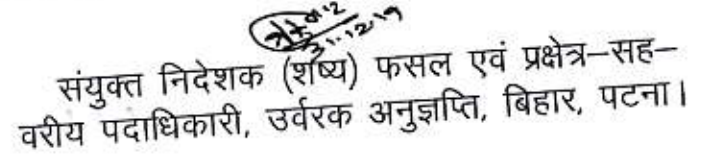 31.12.19
संयुक्त निदेशक (शष्य) फसल एवं प्रक्षेत्र–सह–
वरीय पदाधिकारी, उर्वरक अनुज्ञप्ति, बिहार, पटना।